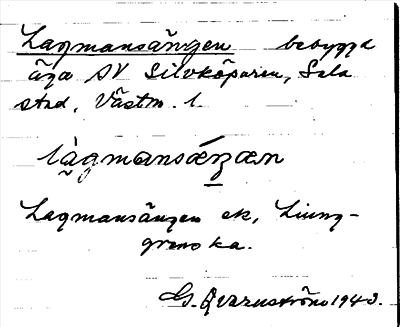 Lagmansängen bebyggd
äga SV Silvköparen, Sala
stad, Västm. l.
làgmansǽŋæn
Lagmansängen ek, Ljung-
grenska.
G. Qvarnström 1943.